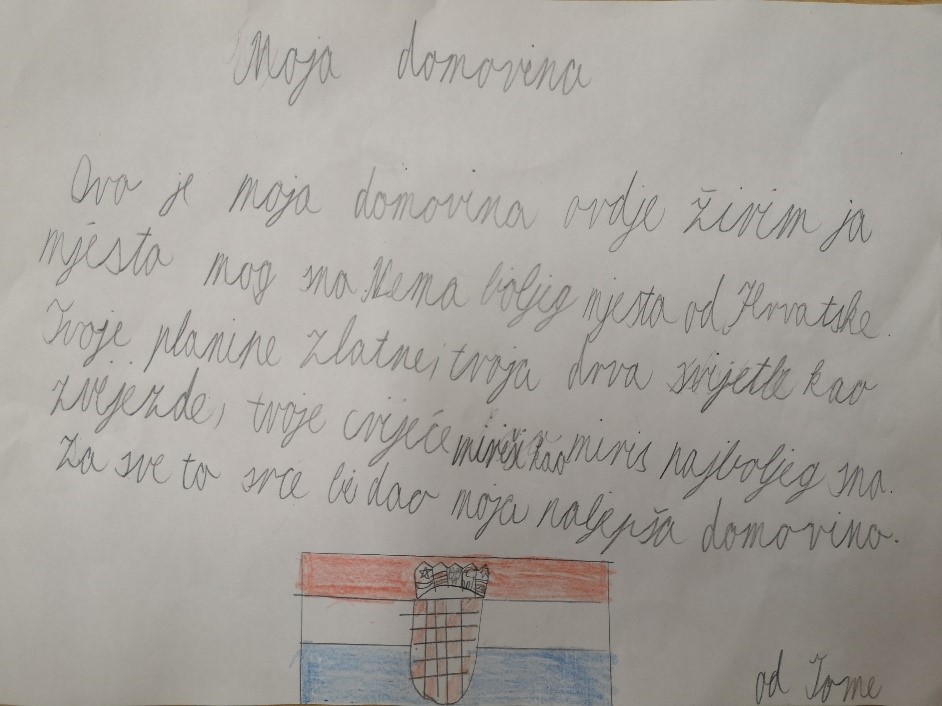 Moja domovina
Ovo je moja domovina ovdje živim ja
mjesta mog sna. Nema boljeg mjesta od Hrvatske.
Tvoje planine zlatne, tvoja drva svijetle kao
zvijezde, tvoje cvijeće miriši kao miris najboljeg sna.
Za sve to srce bi dao moja naljepša domovino.
od Tome